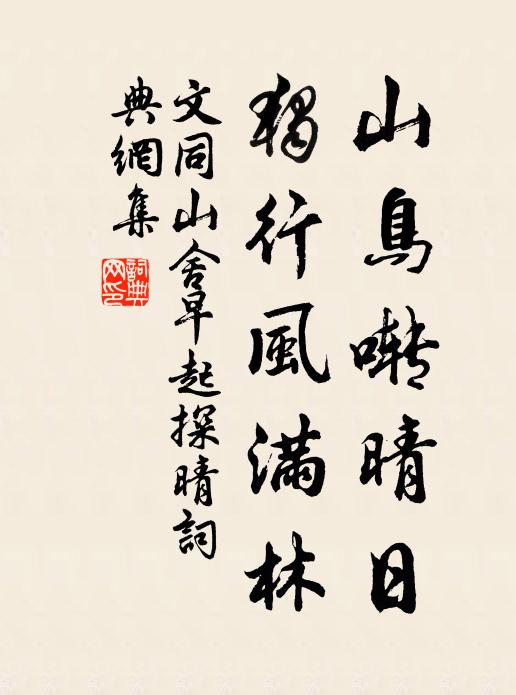 山鳥囀晴日
獨行風滿林
文同山舍早起探晴詞
典網集
詞典网印